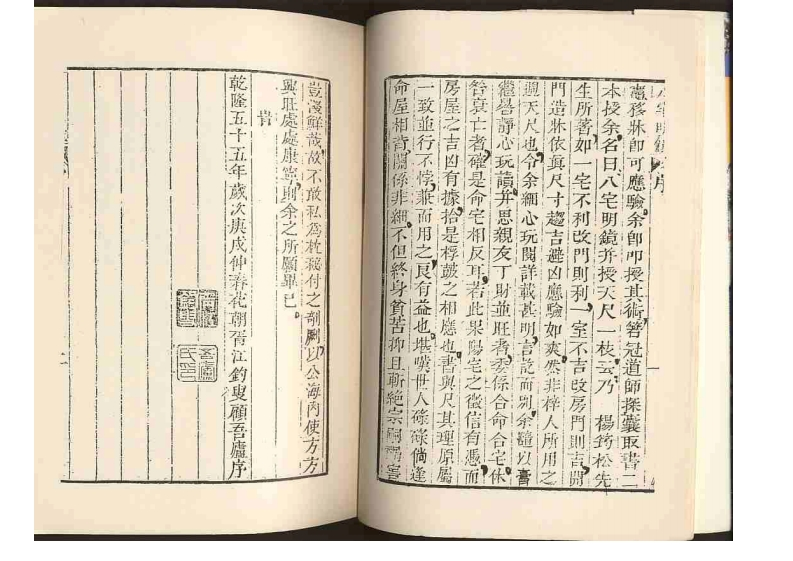 八宅明鏡 序
應移牀即可應驗余即叩授其術箬冠道師探囊取書二
本授余名曰八宅明鏡并授天尺一枝云乃 楊筠松先
生所著如一宅不利改門則利一室不吉改房門則吉開
門造牀依眞尺寸趨吉避凶應驗如爽然非梓人所用之
週天尺也令余細心玩閱詳載甚明言訖而別余隨以膏
繼晷靜心玩讀并思親友丁財並旺者委係合命合宅休
咎衰亡者確是命宅相反耳若此果陽宅之徵信有憑而
房屋之吉凶有據拾是桴鼓之相應也書與尺其理原屬
一致並行不悖兼而用之良有益也堪嘆世人碌碌倘逢
命屋相背關係非細不但終身貧苦抑且斬絕宗嗣禍害
豈淺鮮哉故不敢私為枕秘付之剞劂以公海內使方方
興旺處處康寧則余之所願畢已
旹
乾隆五十五年歲次庚戌仲春花朝胥江釣叟顧吾廬序